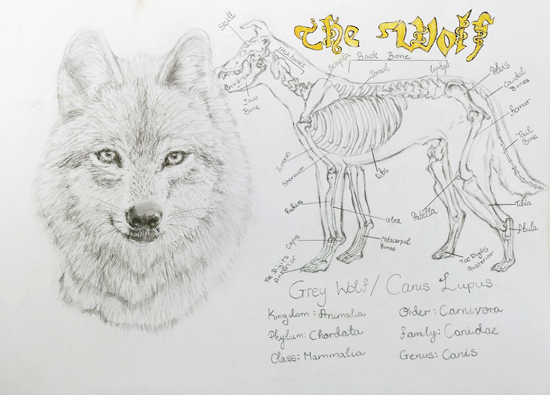 The Wolf
Skull
Jaw
Bone
Neck Bones
Scapula
Back Bone
Dorsal
Lumbar
Pelvis
Caudal
Bones
Femur
Tail
Bone
Sternum
Ribs
Radius
Ulna
Patella
Tibia
Fibula
Carpo
Metacarpal
Bones
Toe Digits
Anterior
Toe Digits
Posterior
Grey Wolf / Canis Lupus
Kingdom: Animalia
Order: Carnivora
Phylum: Chordata
Family: Canidae
Class: Mammalia
Genus: Canis